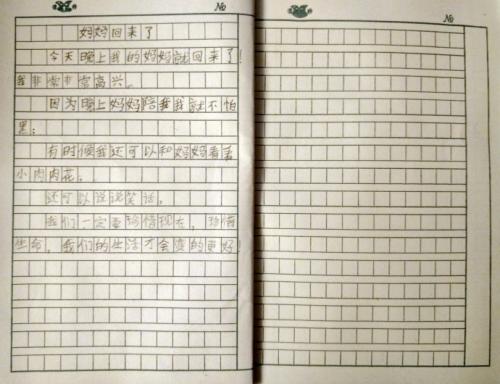 №
№
妈妈回来了
今天晚上我的妈妈就回来了！
我非常非常高兴。
因为晚上妈妈陪我我就不怕
黑；
有时候我还可以和妈妈看看
小肉肉花。
还可以说说笑话。
我们一定要珍惜现在，珍惜
生命，我们的生活才会变的更好！